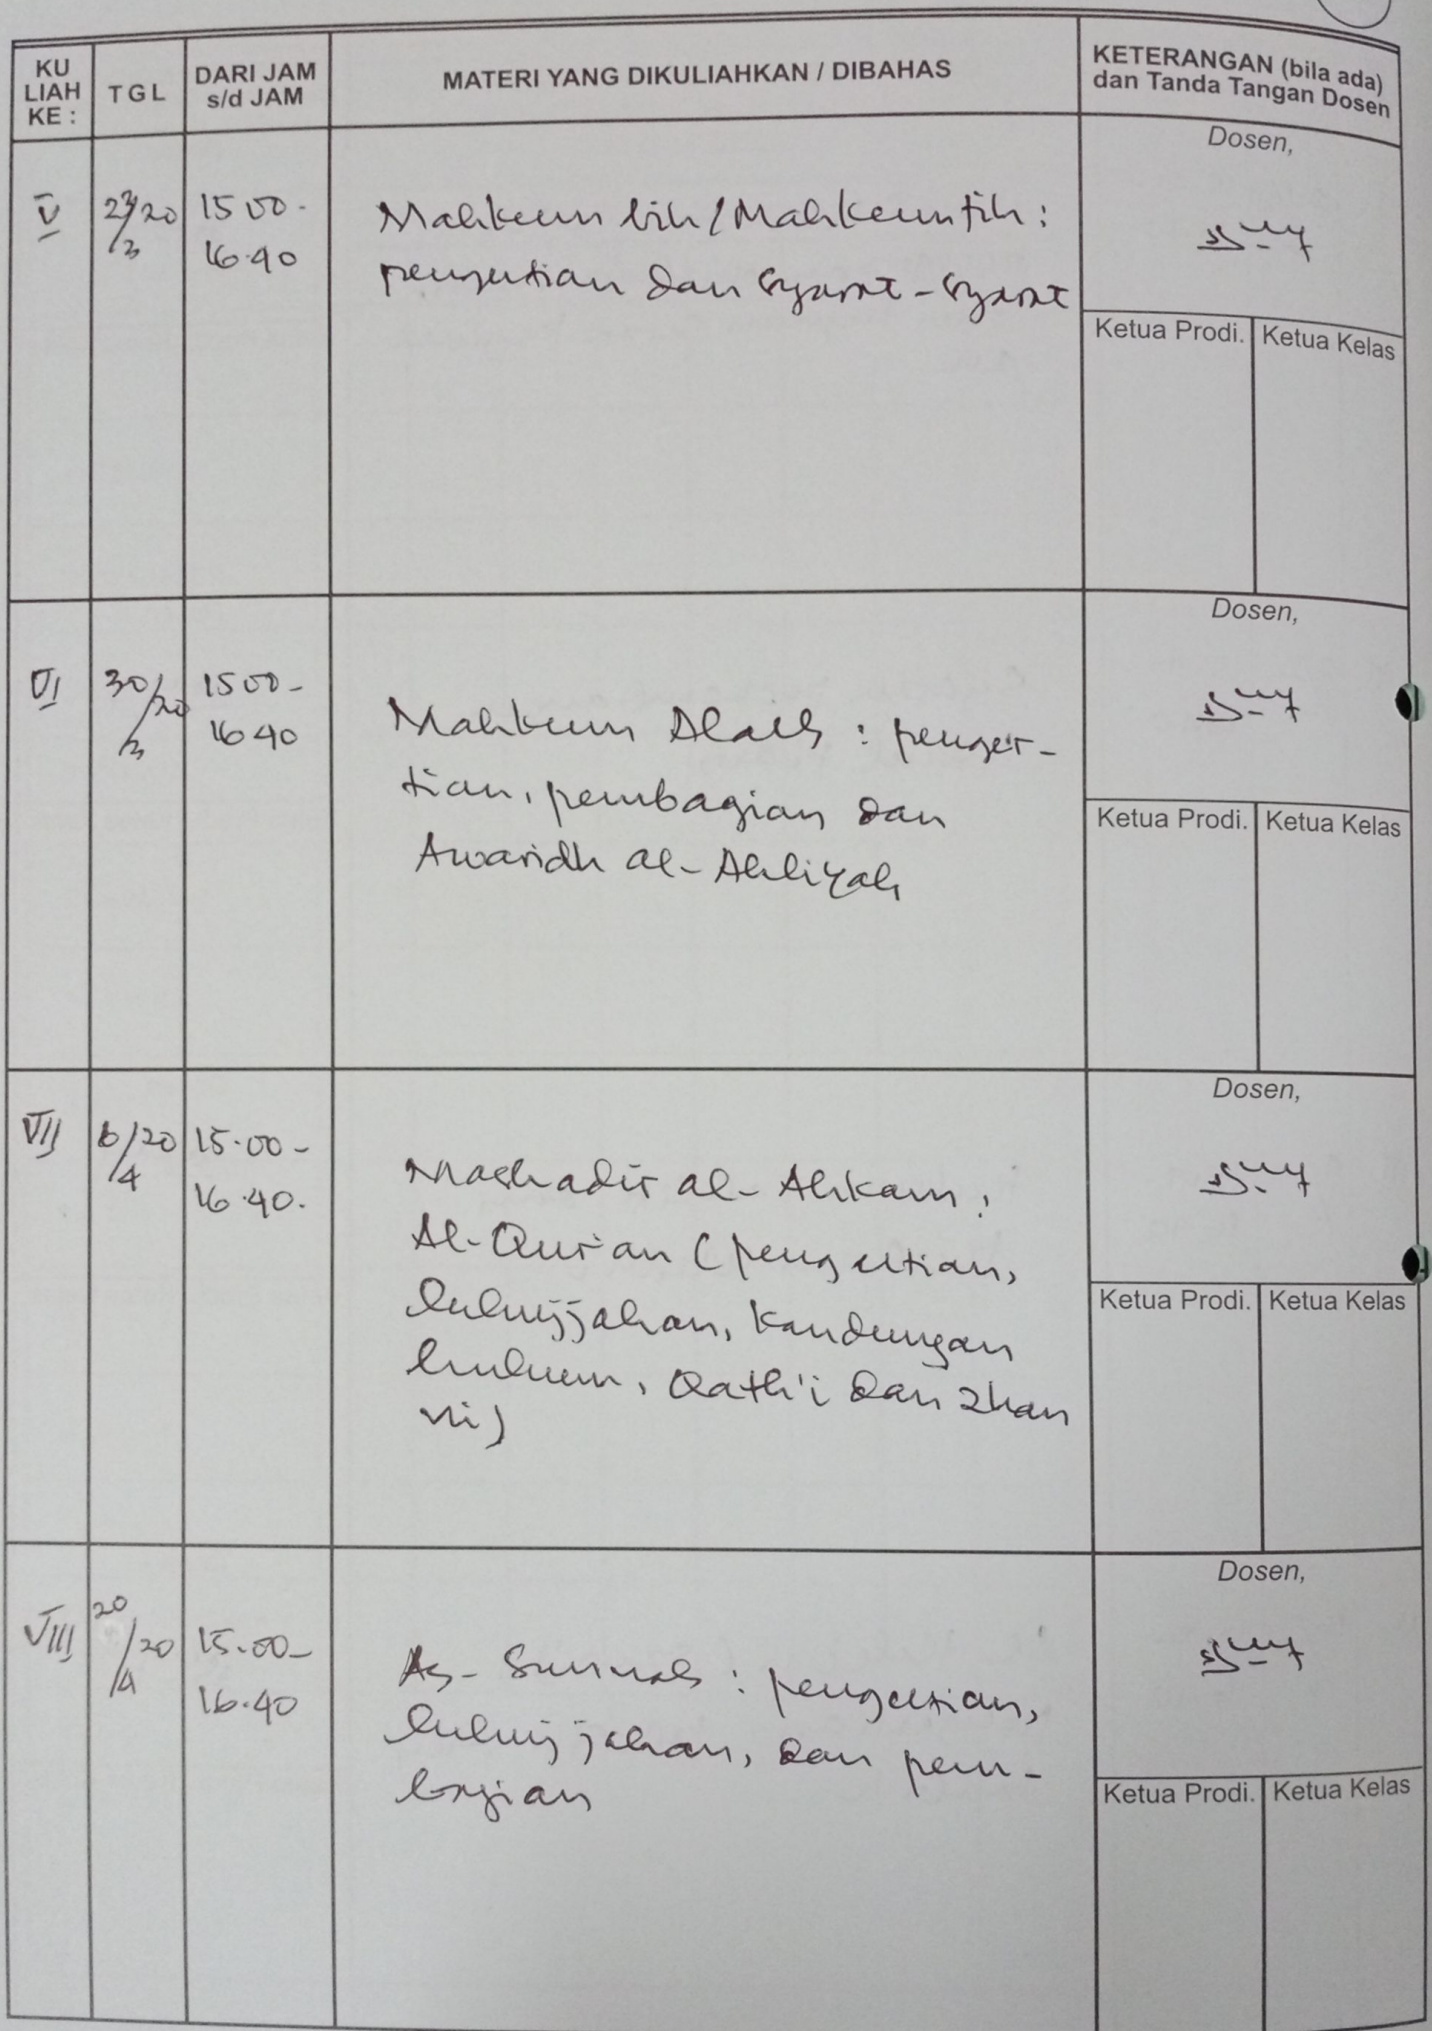 KU LIAH KE :
TGL
DARI JAM s/d JAM
MATERI YANG DIKULIAHKAN / DIBAHAS
KETERANGAN (bila ada) dan Tanda Tangan Dosen
V
23/20
/3
15 00 -
16.40
Mahkum bih / Mahkum fih :
pengertian dan syarat-syarat
Dosen,
Ketua Prodi.
Ketua Kelas
VI
30/20
/3
15 00 -
16 40
Mahkum Alaih : penger-
tian, pembagian dan
Awaridh al-Ahliyah
Dosen,
Ketua Prodi.
Ketua Kelas
VII
6/20
/4
15.00 -
16.40.
Mashadir al-Ahkam :
Al-Qur'an (pengertian,
kehujjahan, kandungan
hukum, Qath'i dan zhan
ni)
Dosen,
Ketua Prodi.
Ketua Kelas
VIII
20
/20
/4
15.00 -
16.40
As-Sunnah : pengertian,
kehujjahan, dan pem-
bagian
Dosen,
Ketua Prodi.
Ketua Kelas